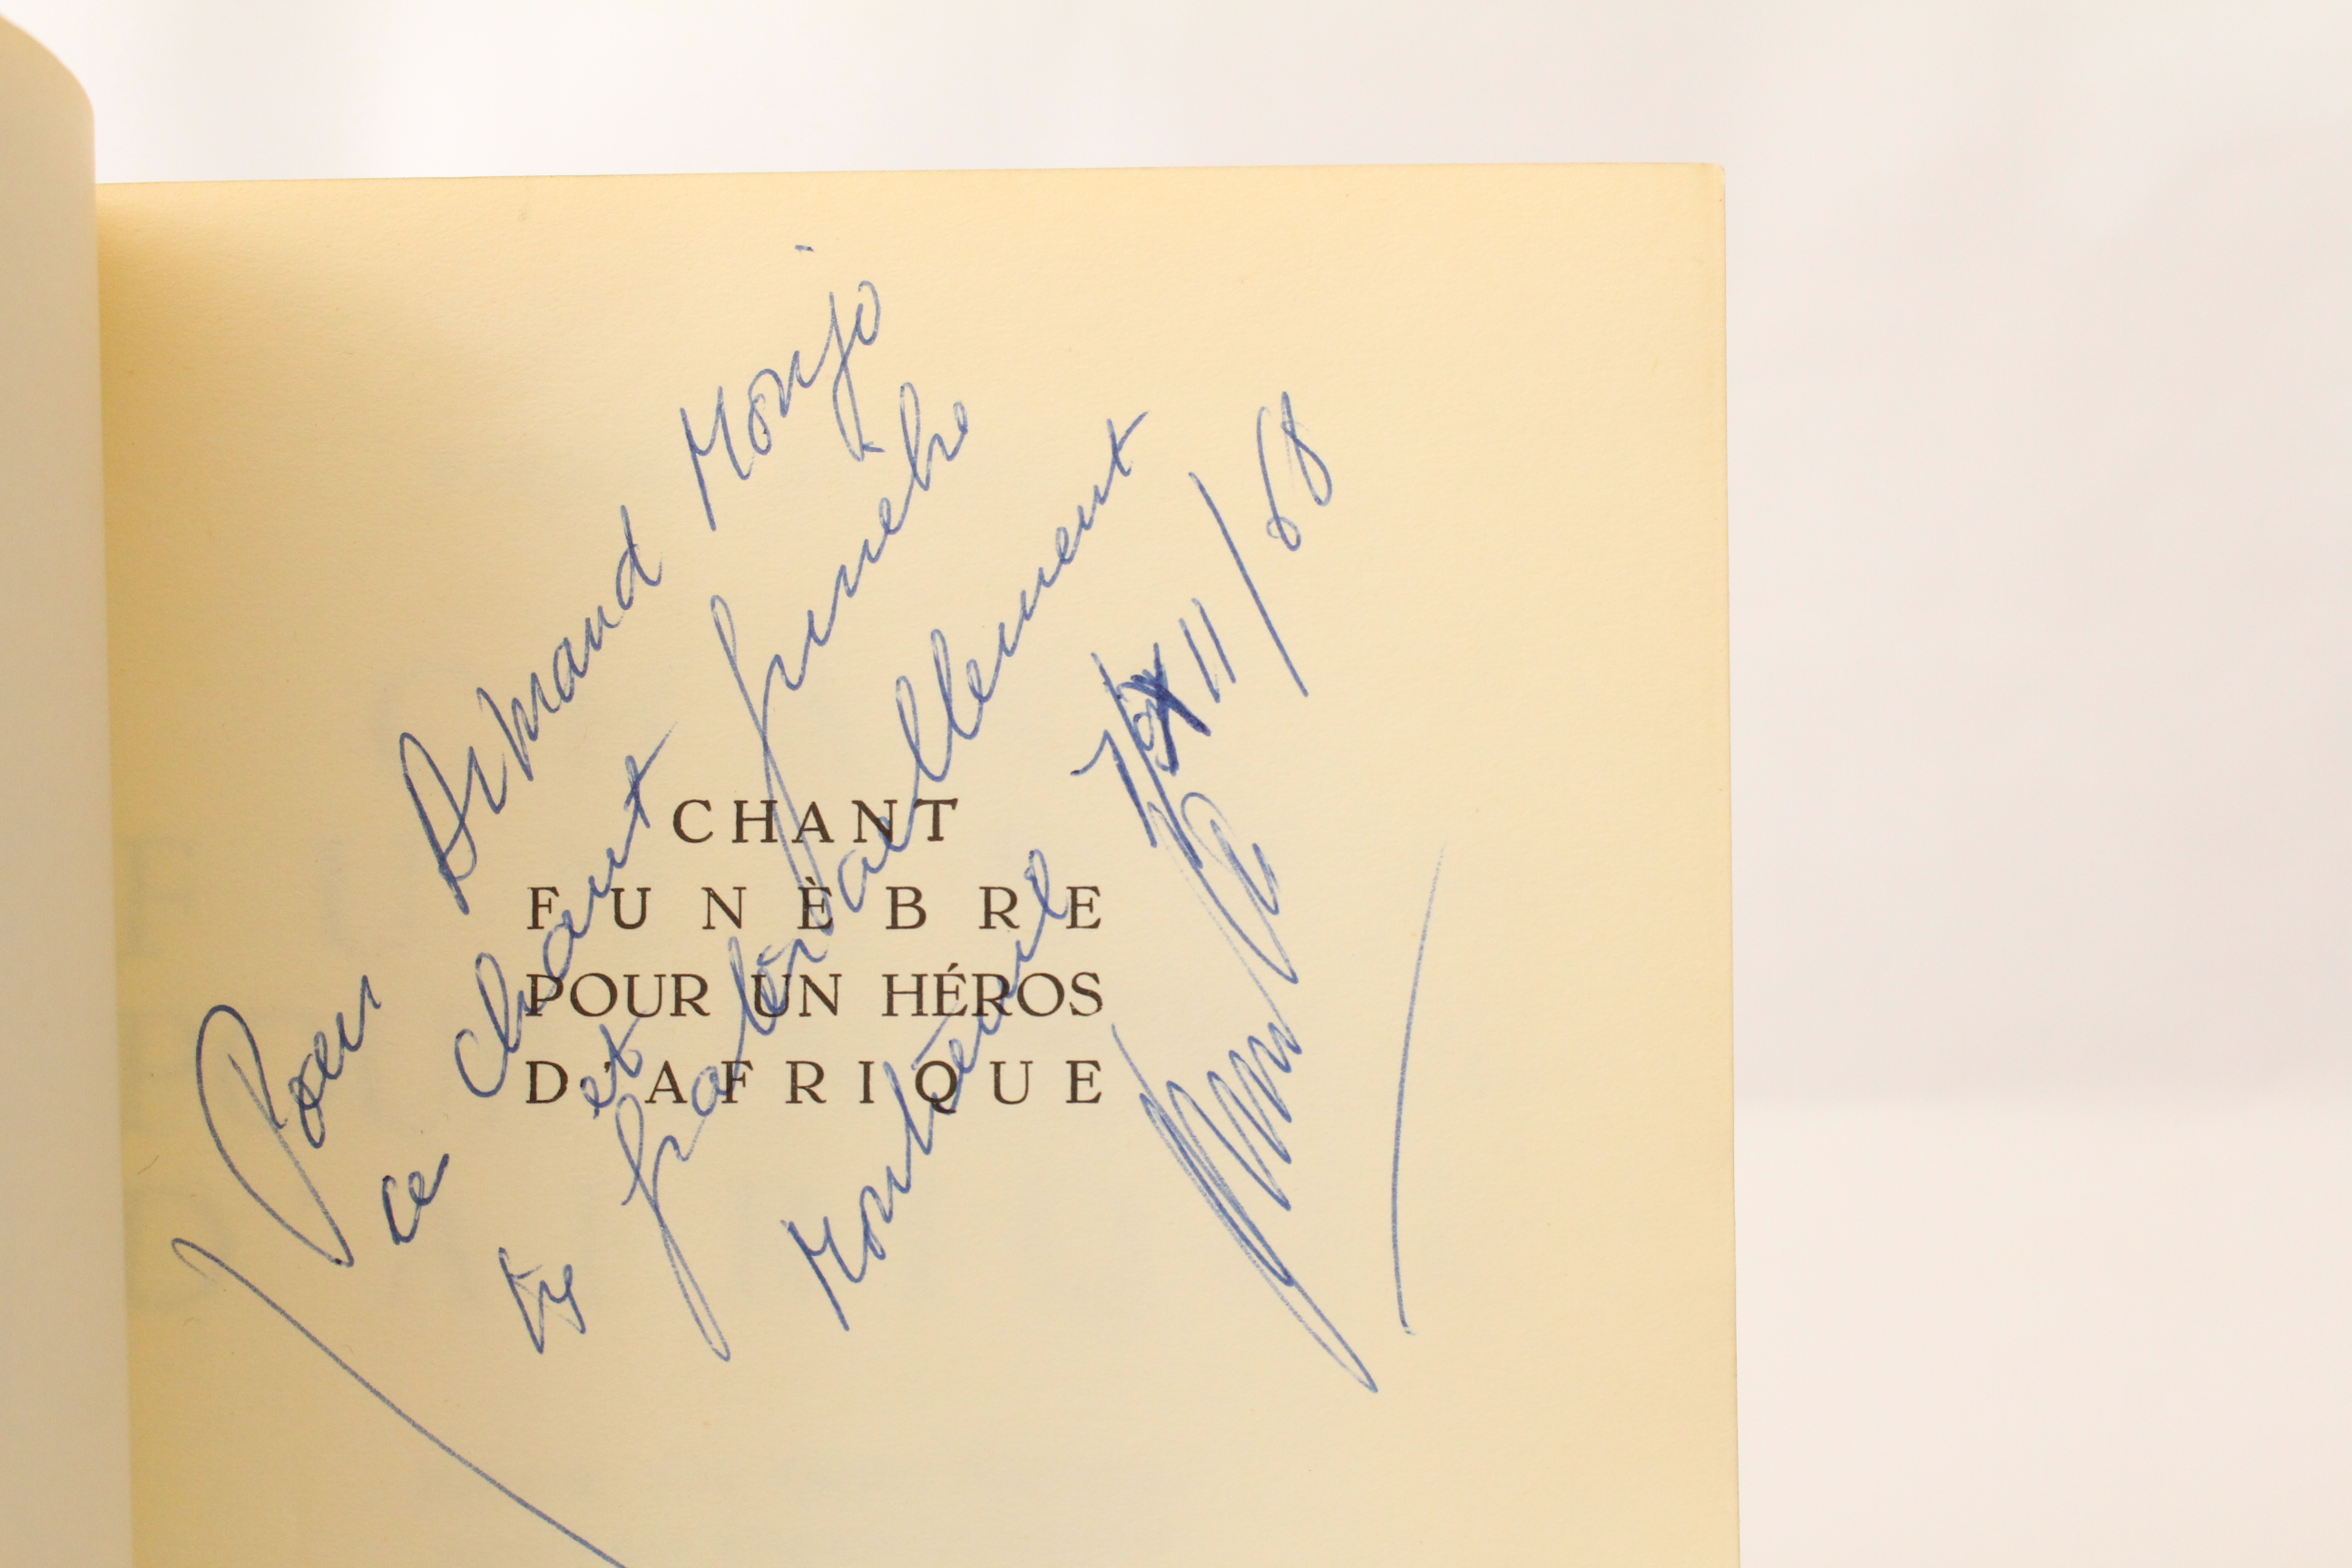 Pour Armand Monjo
ce chant funèbre
et
très fraternellement
Montreuil /XII/68
CHANT
FUNÈBRE
POUR UN HÉROS
D'AFRIQUE